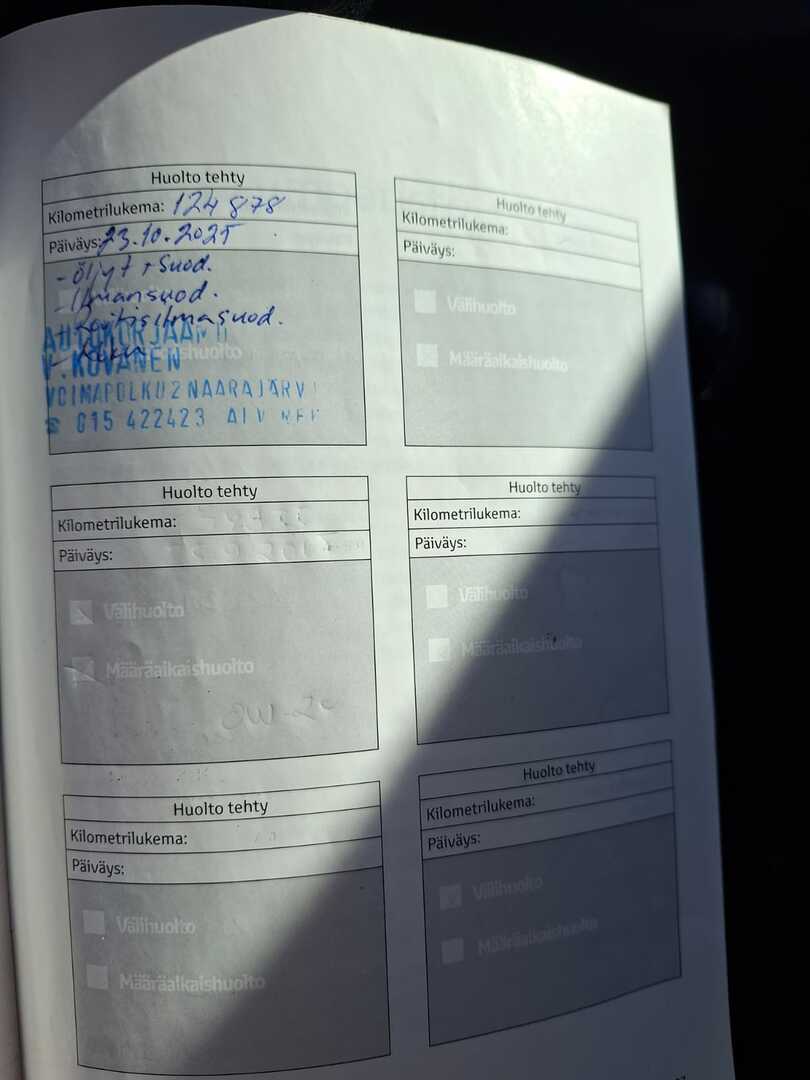 Huolto tehty
Kilometrilukema: 124 878
Päiväys: 23.10.2025
- Öljyt + Suod.
- Ilmansuod.
- Raitisilmasuod.
AUTOKORJAAMO
V. KOVANEN
VOIMAPOLKU 2 NAARAJÄRVI
☎ 015 422423 ALV REK
Huolto tehty
Kilometrilukema:
Päiväys:
Välihuolto
Määräaikaishuolto
Huolto tehty
Kilometrilukema:
Päiväys:
Välihuolto
Määräaikaishuolto
0W-20
Huolto tehty
Kilometrilukema:
Päiväys:
Välihuolto
Määräaikaishuolto
Huolto tehty
Kilometrilukema:
Päiväys:
Välihuolto
Määräaikaishuolto
Huolto tehty
Kilometrilukema:
Päiväys:
Välihuolto
Määräaikaishuolto